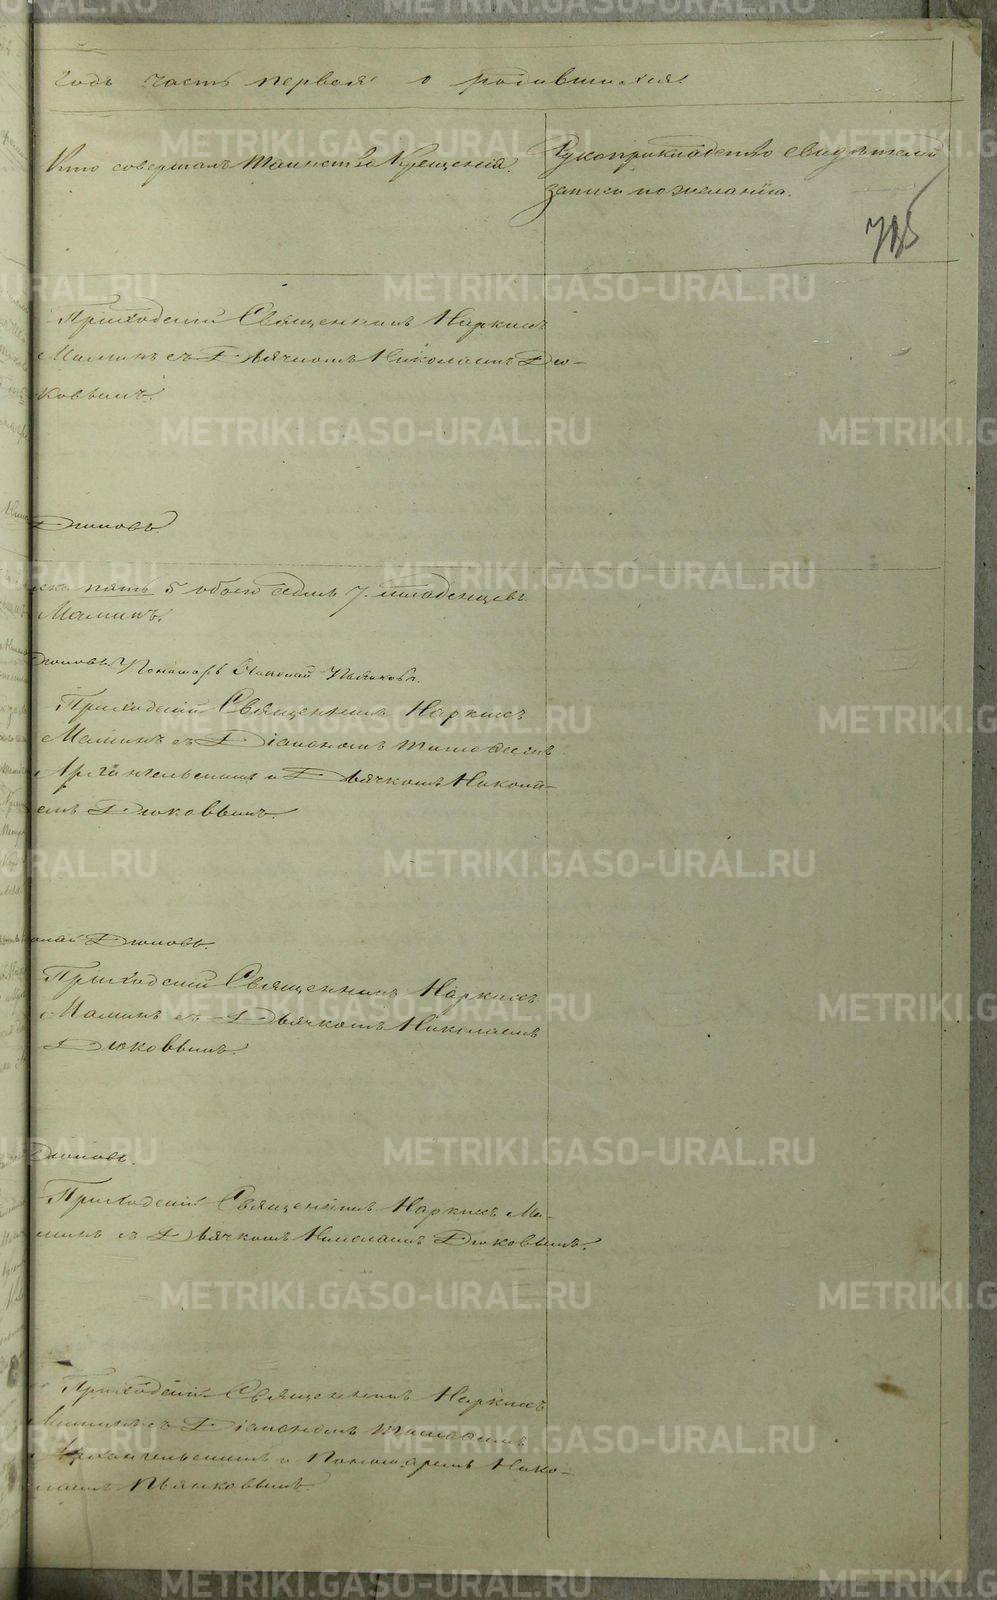 годъ часть первая о родившихся.
Кто совершалъ Таинство Крещенія.
Рукоприкладство свидѣтелей
записи по желанію.
Приходскій Священникъ Наркисъ
Маминъ съ Дьячкомъ Николаемъ Дю-
ковымъ.
Дюковъ.
пять 5 обоего 7. младенцевъ.
Маминъ.
Дюковъ. Пономарь Николай Пьянковъ.
Приходскій Священникъ Наркисъ
Маминъ съ Діакономъ Тимофеемъ
Архангельскимъ и Дьячкомъ Никола-
емъ Дюковымъ.
олай Дюковъ.
Приходскій Священникъ Наркисъ
Маминъ съ Дьячкомъ Николаемъ
Дюковымъ.
Дюковъ.
Приходскій Священникъ Наркисъ Ма-
минъ съ Дьячкомъ Николаемъ Дюковымъ.
Приходскій Священникъ Наркисъ
Маминъ съ Діакономъ Тимофеемъ
Архангельскимъ и Пономаремъ Нико-
лаемъ Пьянковымъ.
METRIKI.GASO-URAL.RU